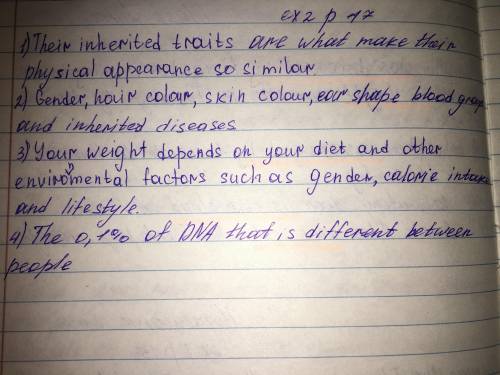 ex2 p 17
1) Their inherited traits are what make their
physical appearance so similar.
2) Gender, hair colour, skin colour, ear shape blood group
and inherited diseases.
3) Your weight depends on your diet and other
enviromental factors such as gender, calorie intake
and lifestyle.
4) The 0,1% of DNA that is different between
people